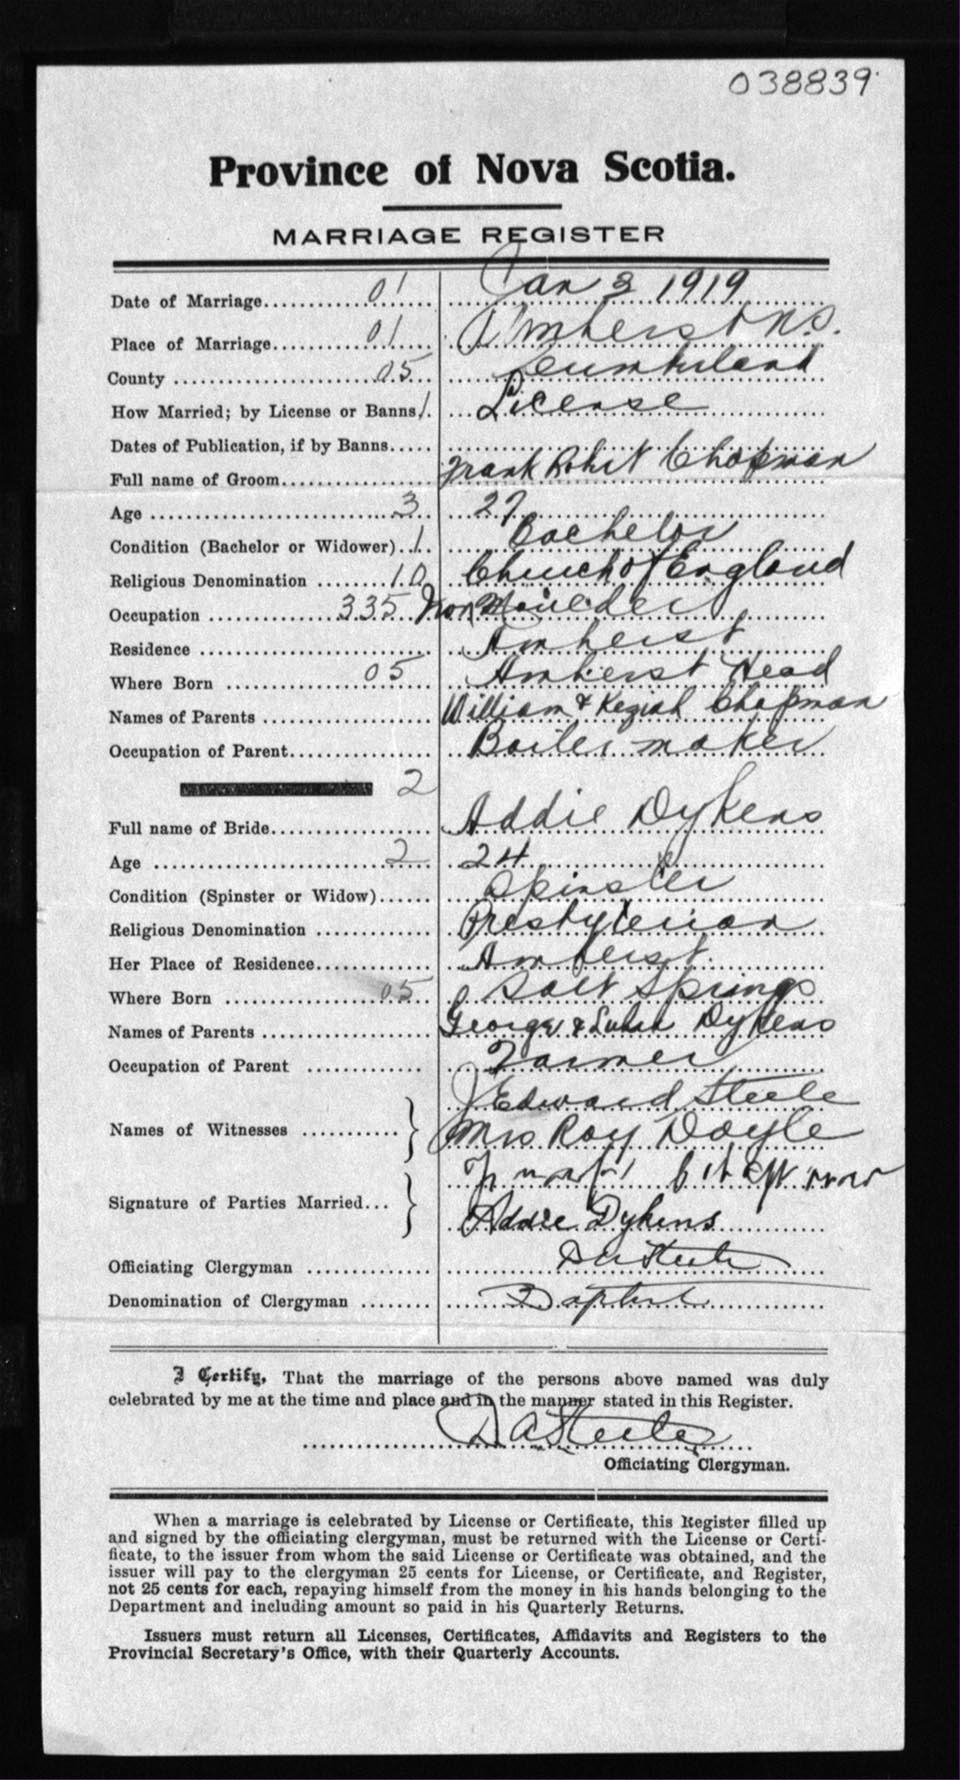 038839
Province of Nova Scotia.
MARRIAGE REGISTER
Date of Marriage 01 Jan 3 1919
Place of Marriage 01 Amherst N.S.
County 05 Cumberland
How Married; by License or Banns 1 License
Dates of Publication, if by Banns
Full name of Groom Frank Robert Chapman
Age 3 27
Condition (Bachelor or Widower) 1 Bachelor
Religious Denomination 10 Church of England
Occupation 335 Iron Moulder
Residence Amherst
Where Born 05 Amherst Head
Names of Parents William & Keziah Chapman
Occupation of Parent Boiler maker
2
Full name of Bride Addie Dykens
Age 2 24
Condition (Spinster or Widow) Spinster
Religious Denomination Presbyterian
Her Place of Residence Amherst
Where Born 05 Salt Springs
Names of Parents George & Dykens
Occupation of Parent Farmer
J Edward Steele
Names of Witnesses Mrs Roy Doyle
Signature of Parties Married
Addie Dykens
Officiating Clergyman D A Steele
Denomination of Clergyman Baptist
I Certify, That the marriage of the persons above named was duly
celebrated by me at the time and place and in the manner stated in this Register.
D A Steele
Officiating Clergyman.
When a marriage is celebrated by License or Certificate, this Register filled up
and signed by the officiating clergyman, must be returned with the License or Certi-
ficate, to the issuer from whom the said License or Certificate was obtained, and the
issuer will pay to the clergyman 25 cents for License, or Certificate, and Register,
not 25 cents for each, repaying himself from the money in his hands belonging to the
Department and including amount so paid in his Quarterly Returns.
Issuers must return all Licenses, Certificates, Affidavits and Registers to the
Provincial Secretary's Office, with their Quarterly Accounts.